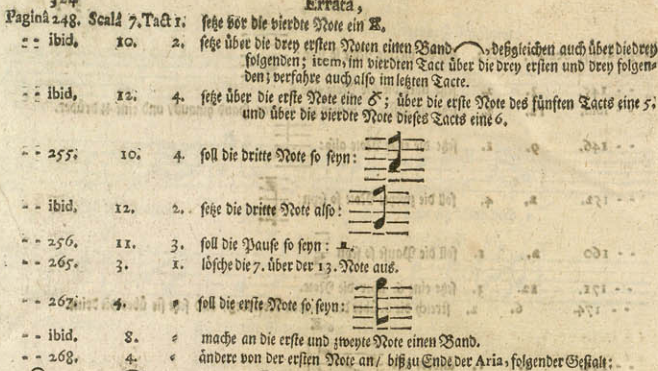 324
Errata,
Paginâ 248. Scalâ 7. Tact 1. setze vor die vierdte Note ein ♮.
- - ibid. 10. 2. setze über die drey ersten Noten einen Band ⁀, deßgleichen auch über die drey
folgenden; item, im vierdten Tact über die drey ersten und drey folgen-
den; verfahre auch also im letzten Tacte.
- - ibid. 12. 4. setze über die erste Note eine 6; über die erste Note des fünften Tacts eine 5.
und über die vierdte Note dieses Tacts eine 6.
- - 255. 10. 4. soll die dritte Note so seyn:
- - ibid. 12. 2. setze die dritte Note also:
- - 256. 11. 3. soll die Pause so seyn:
- - 265. 3. 1. lösche die 7. über der 13. Note aus.
- - 267. 4. = soll die erste Note so seyn:
- - ibid. 8. = mache an die erste und zweyte Note einen Band.
- - 268. 4. = ändere von der ersten Note an/ biß zu Ende der Aria, folgender Gestalt: